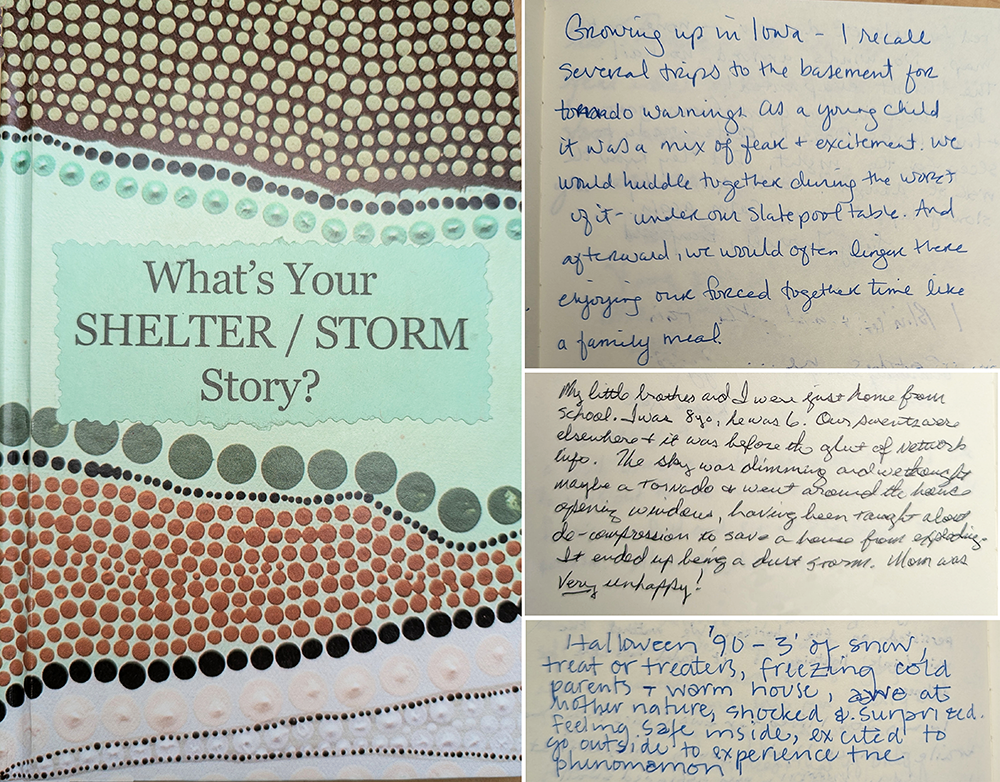 What's Your
SHELTER / STORM
Story?
Growing up in Iowa - I recall
several trips to the basement for
tornado warnings. As a young child
it was a mix of fear + excitement. We
would huddle together during the worst
of it - under our slate pool table. And
afterward, we would often linger there
enjoying our forced together time like
a family meal.
My little brother and I were just home from
school. I was 8yo, he was 6. Our parents were
elsewhere + it was before the glut of network
info. The sky was dimming and we thought
maybe a Tornado & went around the house
opening windows, having been taught about
de-compression to save a house from exploding.
It ended up being a dust storm. Mom was
very unhappy!
Halloween '90 - 3' of snow,
treat or treaters, freezing cold
parents + warm house, awe at
mother nature, shocked & surprized.
feeling safe inside, excited to
go outside to experience the
phenomenon